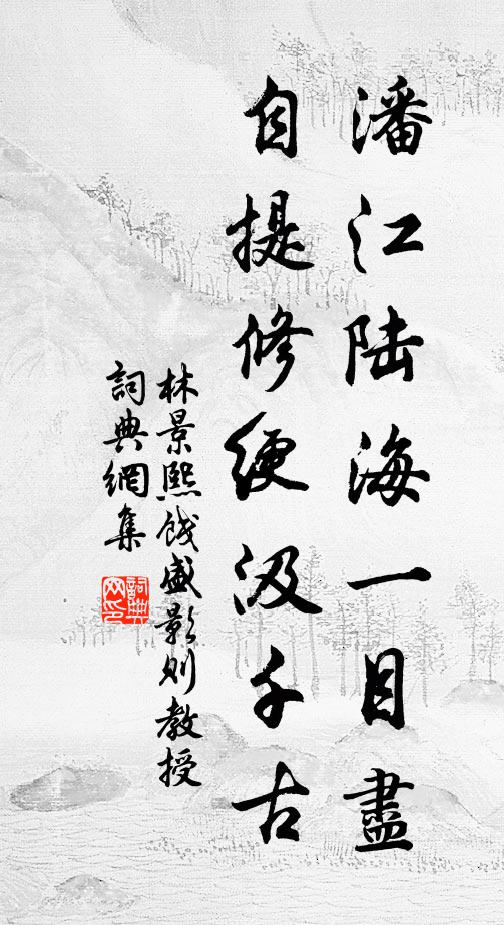 潘江陆海一目盡
自提修绠汲千古
林景熙餞盛影則教授
詞典網集